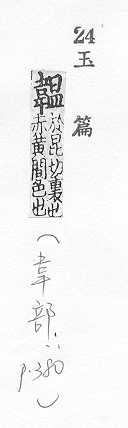 24
玉篇
韞於昆切裹也
赤黃間色也
(韋部:p.380)